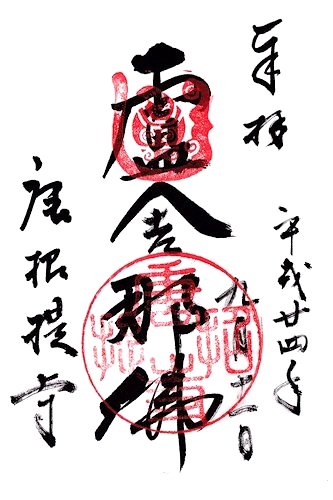 奉拝
平成廿四年
九月 日
盧舎那佛
唐招提寺